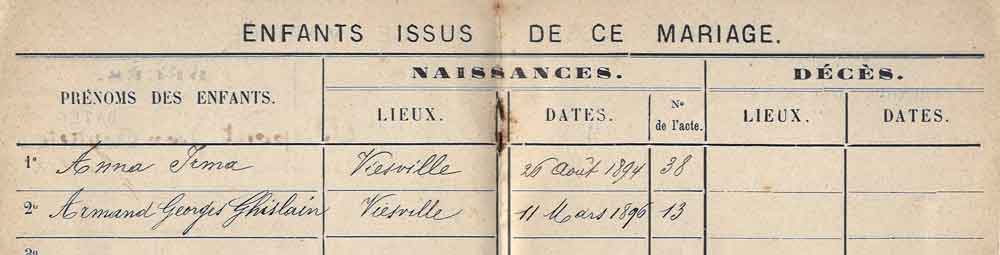 ENFANTS ISSUS DE CE MARIAGE.
PRÉNOMS DES ENFANTS. NAISSANCES. DÉCÈS.
LIEUX. DATES. N° de l'acte. LIEUX. DATES.
1° Anna Irma Viesville 26 Août 1894 38
2° Armand Georges Ghislain Viesville 11 Mars 1896 13